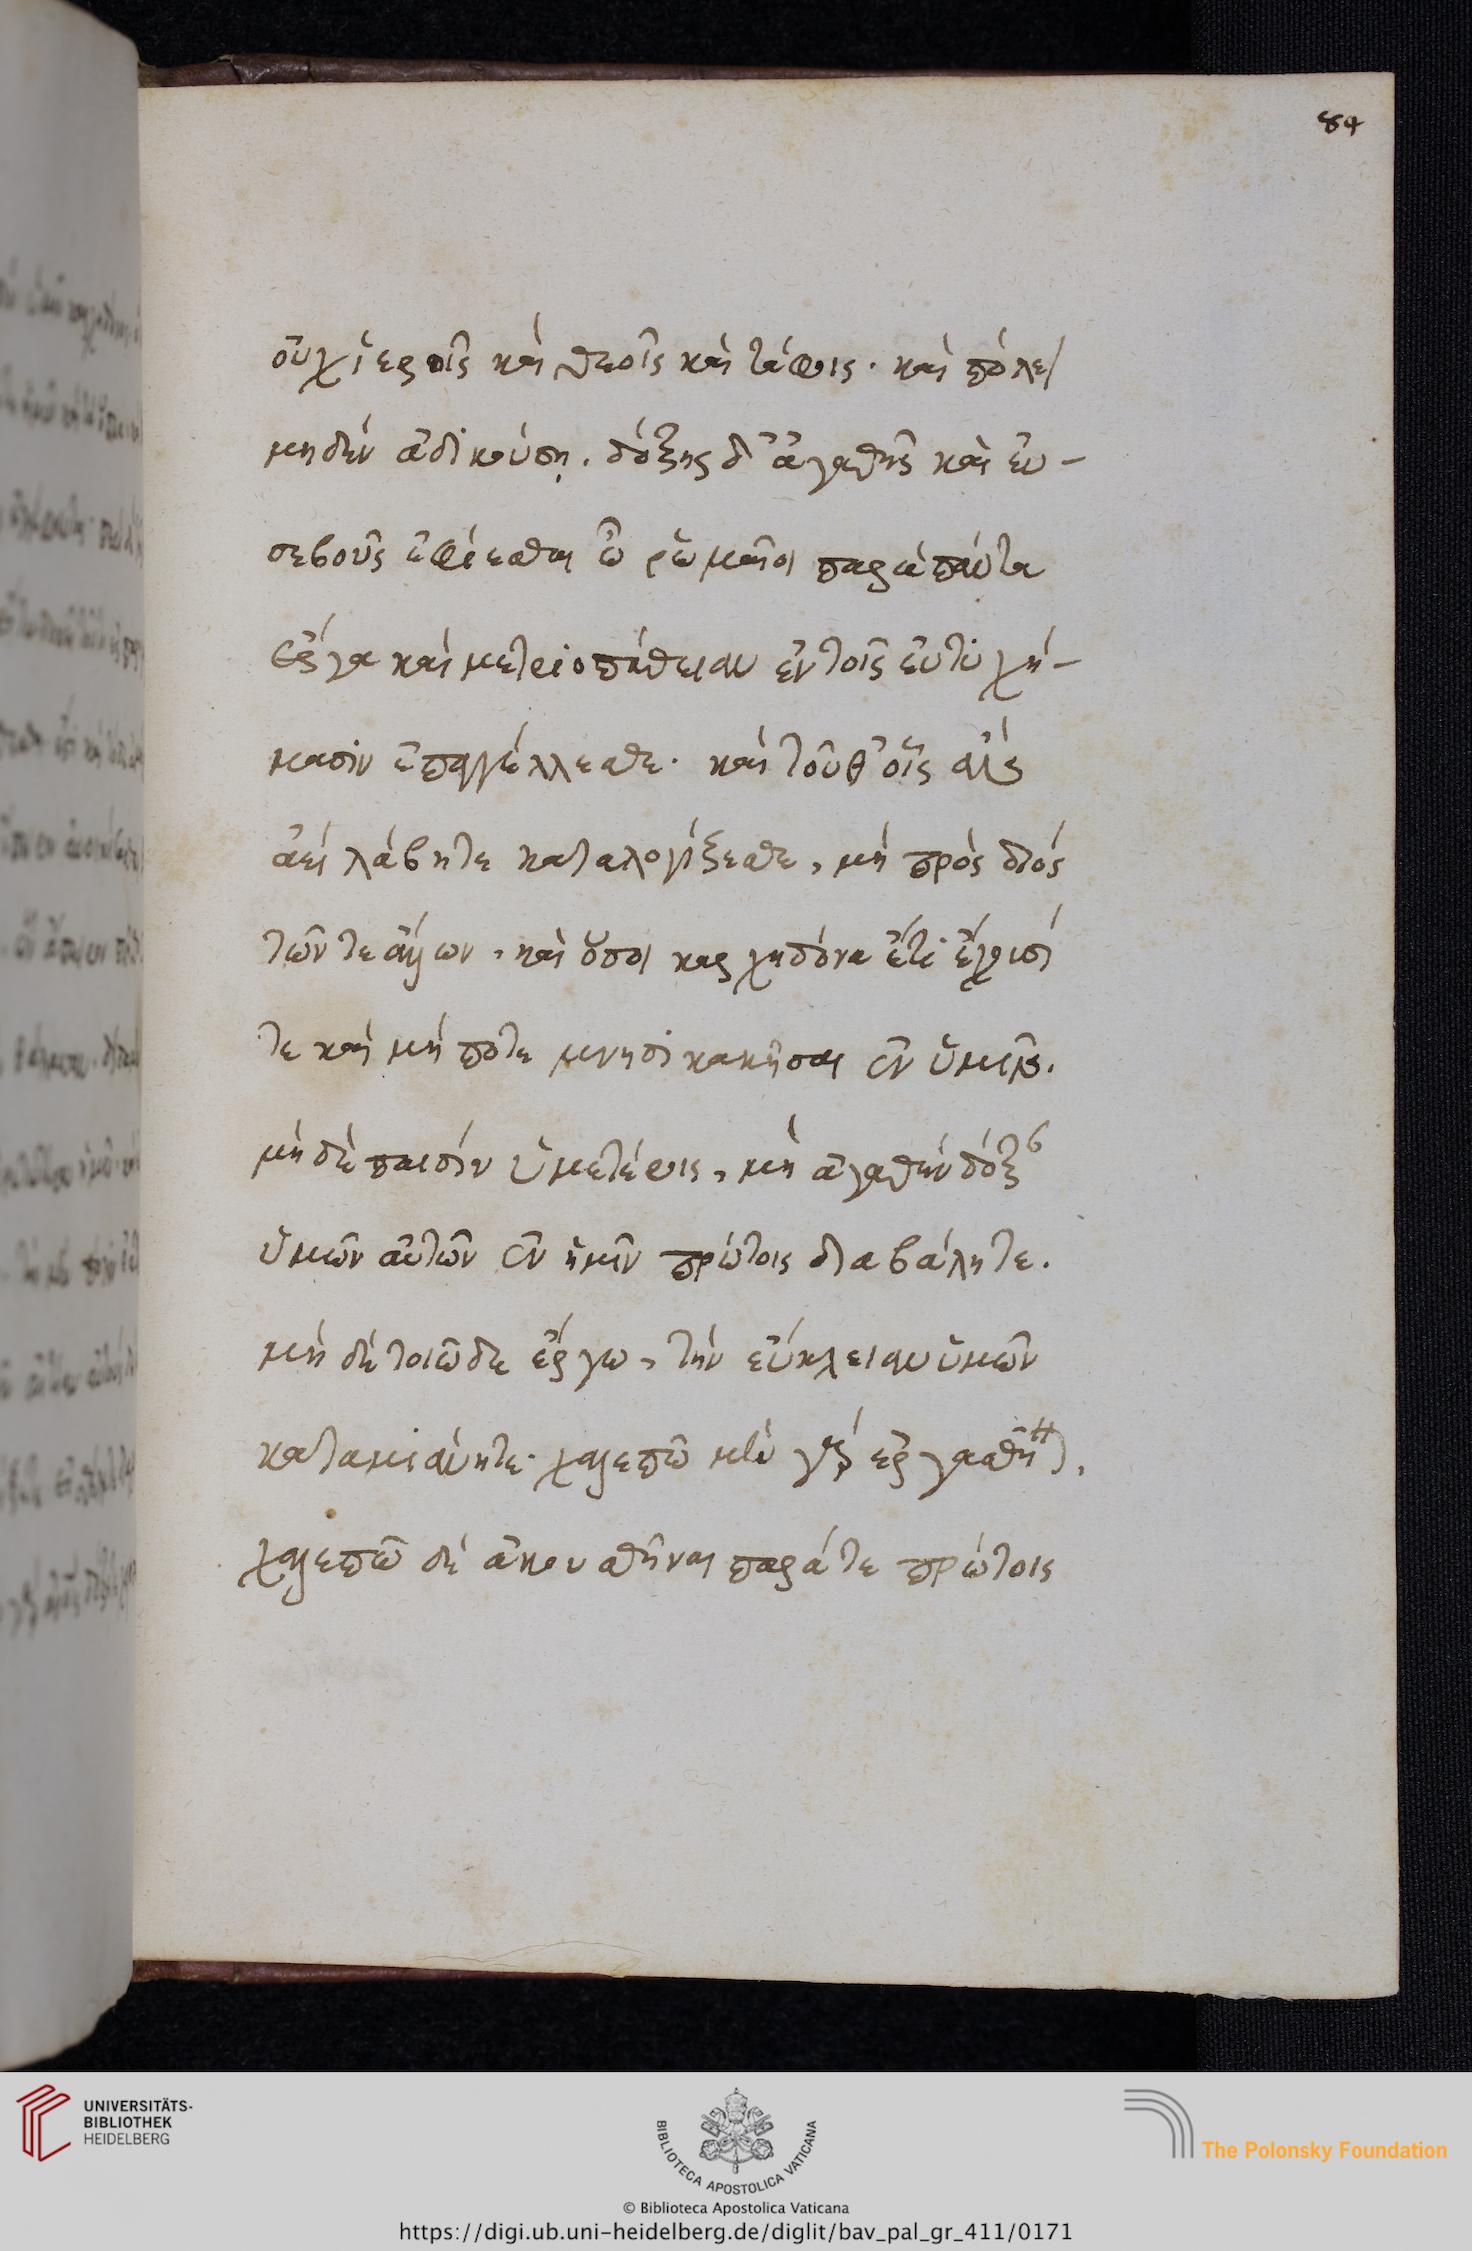 84
οὐχ ἱεροῖς καὶ θεοῖς καὶ τάφοις. καὶ πόλει
μηδὲν ἀδικούσῃ. δόξης δ' ἀγαθῆς καὶ εὐ-
σεβοῦς ἐφίεσθαι ὦ ῥωμαῖοι παρὰ πάντα
ἔργα καὶ μετριοπάθειαν ἐν τοῖς εὐτυχή-
μασιν ἐπαγγέλλεσθε. καὶ τοῦθ' οἷς
ἀεὶ λάβητε καταλογίζεσθε, μὴ πρὸς διὸς
τῶν τε ἄλλων, καὶ ὅσοι καρχηδόνα ἔτι ἔχουσί
τε καὶ μή ποτε μνησικακῆσαι ἐν ὑμῖν.
μηδὲ παισὶν ὑμετέροις, μὴ ἀγαθὴν δόξαν
ὑμῶν αὐτῶν ἐν ἡμῖν πρώτοις διαβάλητε.
μηδὲ τοιῶδε ἔργω, τὴν εὔκλειαν ὑμῶν
καταμιάνητε. χαλεπῶ μὲν γὰρ ἐργασθῆναι,
χαλεπῶ δὲ ἀκουσθῆναι παρά τε πρώτοις
UNIVERSITÄTS-
BIBLIOTHEK
HEIDELBERG
BIBLIOTECA APOSTOLICA VATICANA
The Polonsky Foundation
© Biblioteca Apostolica Vaticana
https://digi.ub.uni-heidelberg.de/diglit/bav_pal_gr_411/0171